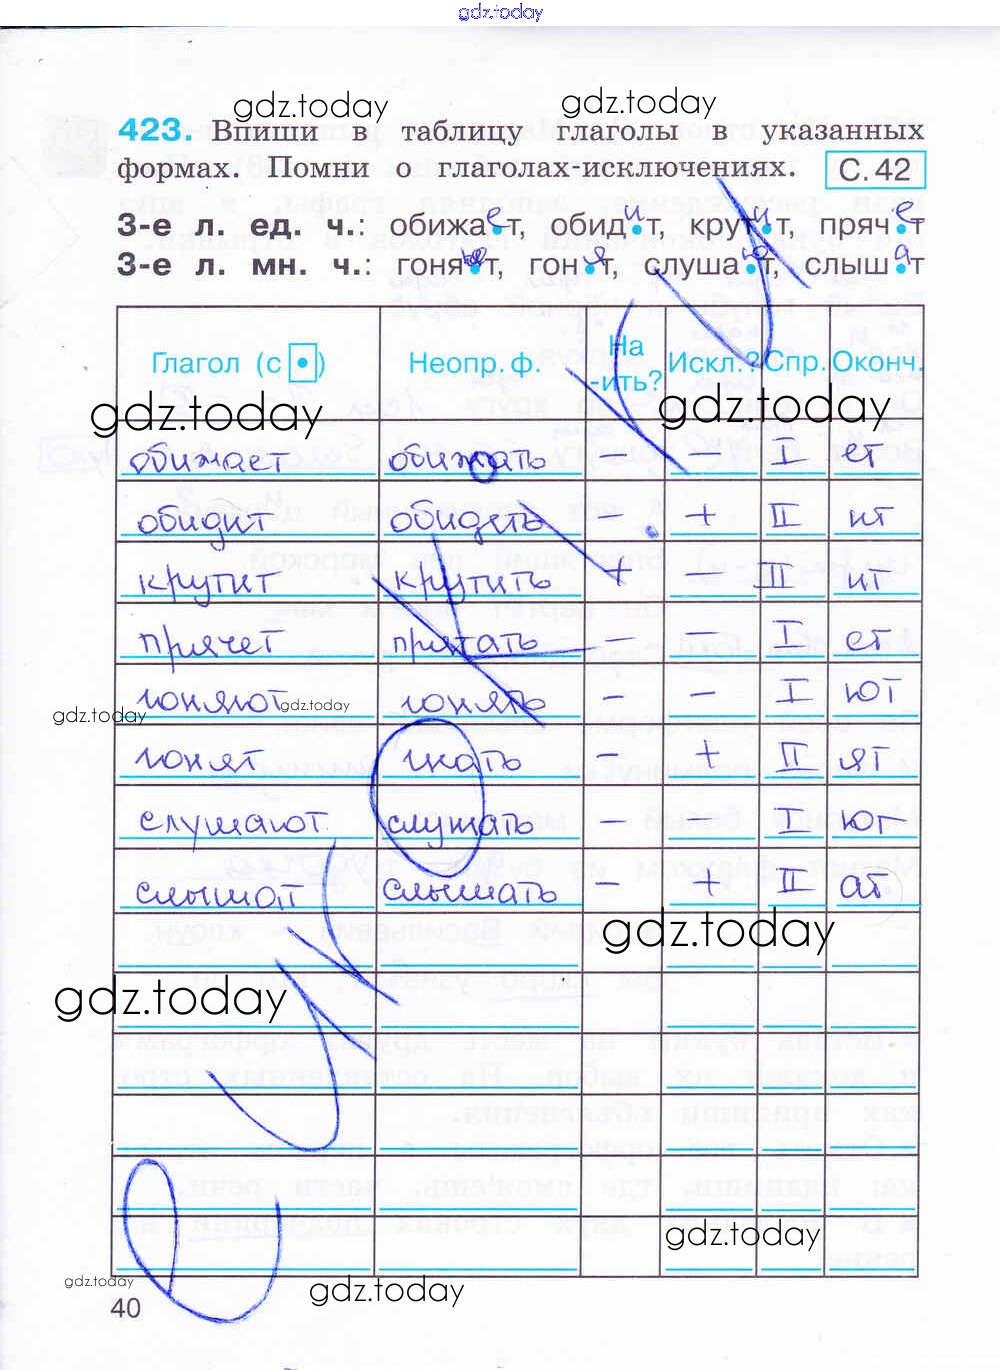 gdz.today
gdz.today gdz.today
423. Впиши в таблицу глаголы в указанных
формах. Помни о глаголах-исключениях. С. 42
3-е л. ед. ч.: обижает, обидит, крутит, прячет
3-е л. мн. ч.: гоняют, гонят, слушают, слышат
Глагол (с •) Неопр. ф. На -ить? Искл.? Спр. Оконч.
gdz.today gdz.today
обижает обижать I ет
обидит обидеть − + II ит
крутит крутить + − II ит
прячет прятать − − I ет
гоняют гонять − − I ют
gdz.today gdz.today
гонят гнать − + II ят
слушают слушать − I ют
слышат слышать − + II ат
gdz.today
gdz.today
gdz.today
gdz.today gdz.today
40